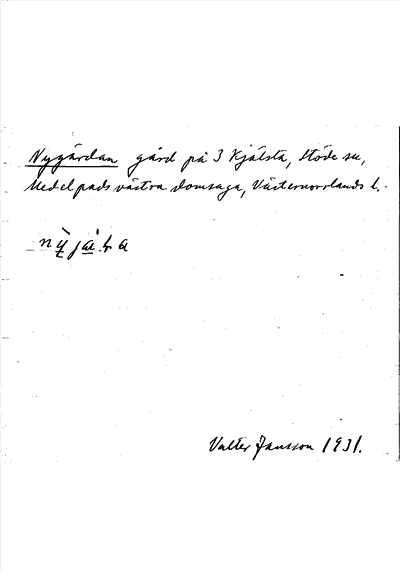 Nygårdan gård på 3 Kjälsta, Stöde sn,
Medelpads västra domsaga, Västernorrlands l.
Valter Jansson 1931.